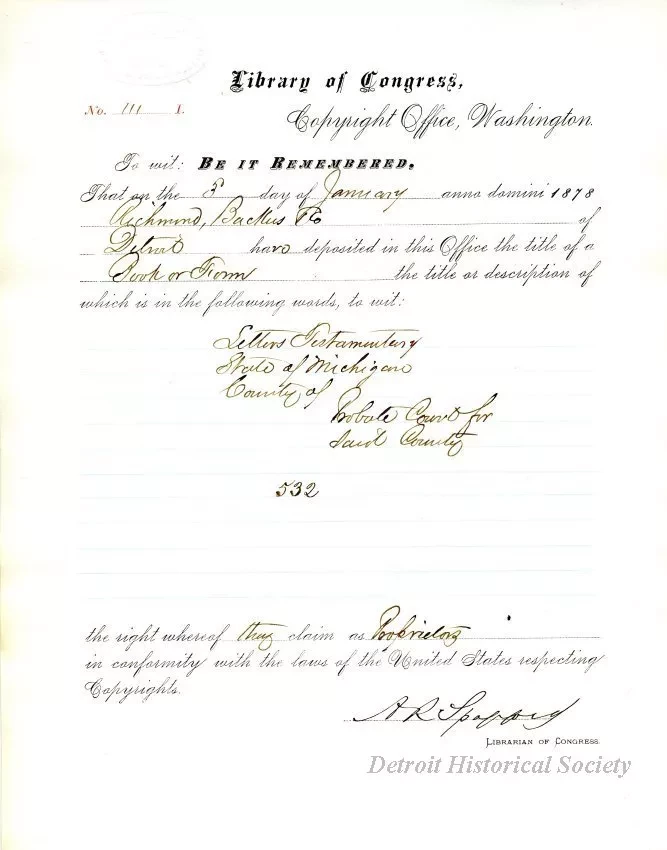 Library of Congress,
No. 111 I.
Copyright Office, Washington.
To wit: BE IT REMEMBERED,
That on the day of January anno domini 1878
Richmond, Backus & Co of
Detroit have deposited in this Office the title of a
Book or Form the title or description of
which is in the following words, to wit:
Letters Testamentary
State of Michigan
County of
Probate Court for
Said County
532
the right whereof they claim as Proprietors
in conformity with the laws of the United States respecting
Copyrights.
A R Spofford
LIBRARIAN OF CONGRESS.
Detroit Historical Society